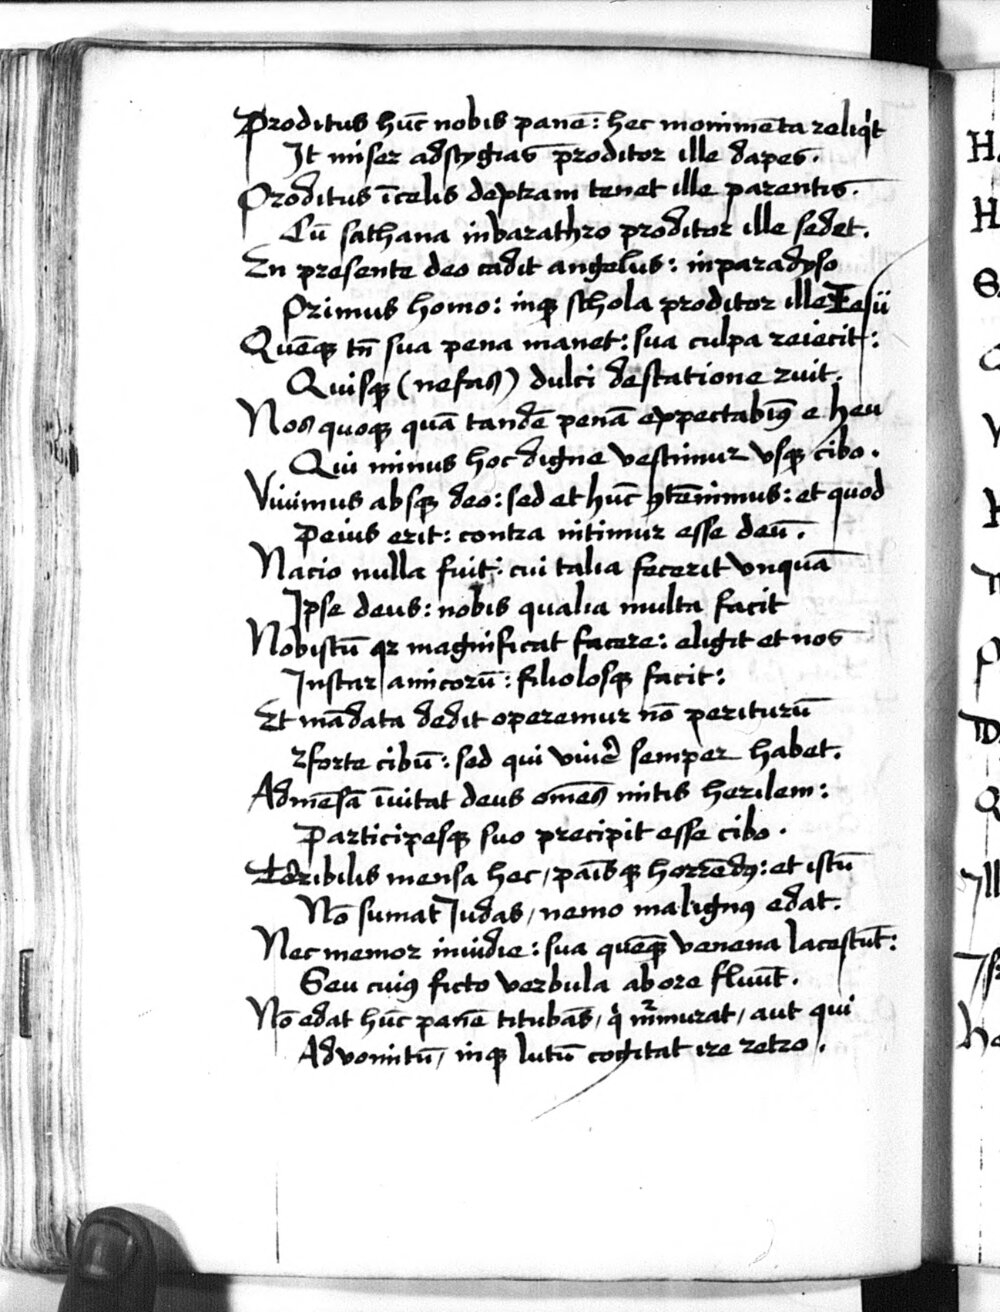 Proditus hūc nobis panē: hec monimēta reliq̇t
It miser adstygias proditor ille dapes.
Proditus īcelis deptram tenet ille parentis.
Cū sathana inbarathro proditor ille sedet.
En presente deo cadit angelus: inparadyso
Primus homo: inqꝫ schola proditor ille Iesū
Quēqꝫ tn̄ sua pena manet: sua culpa reiecit:
Quisqꝫ (nefas) dulci destatione ruit.
Nos quoqꝫ quā tandē penā expectabimꝰ e heu
Qui minus hoc digne vescimur vsqꝫ cibo.
Viuimus absqꝫ deo: sed et hūc ꝯtēnimus: et quod
Peius erit: contra nitimur esse deū.
Nacio nulla fuit: cui talia fecerit vnquā
Ipse deus: nobis qualia multa facit
Nobistū qꝛ magnificat facere: eligit et nos
Instar amicorū: filiolosqꝫ facit:
Et mādata dedit operemur nō periturū
ꝛforte cibū: sed qui viuer̄ semper habet.
Admēsā īuitat deus om̄es mitis herilem:
Participesqꝫ suo precipit esse cibo.
Terribilis mensa hec, pāisqꝫ horrēdꝰ: et istū
Nō sumat Iudas, nemo malignꝰ edat.
Nec memor inuidie: sua quēqꝫ venena lacessūt:
Seu cuiꝰ ficto verbula abore fluūt.
Nō edat hūc panē titubās, q̇ m̄murat, aut qui
Advomitū, inqꝫ lutū cogitat ire retro.